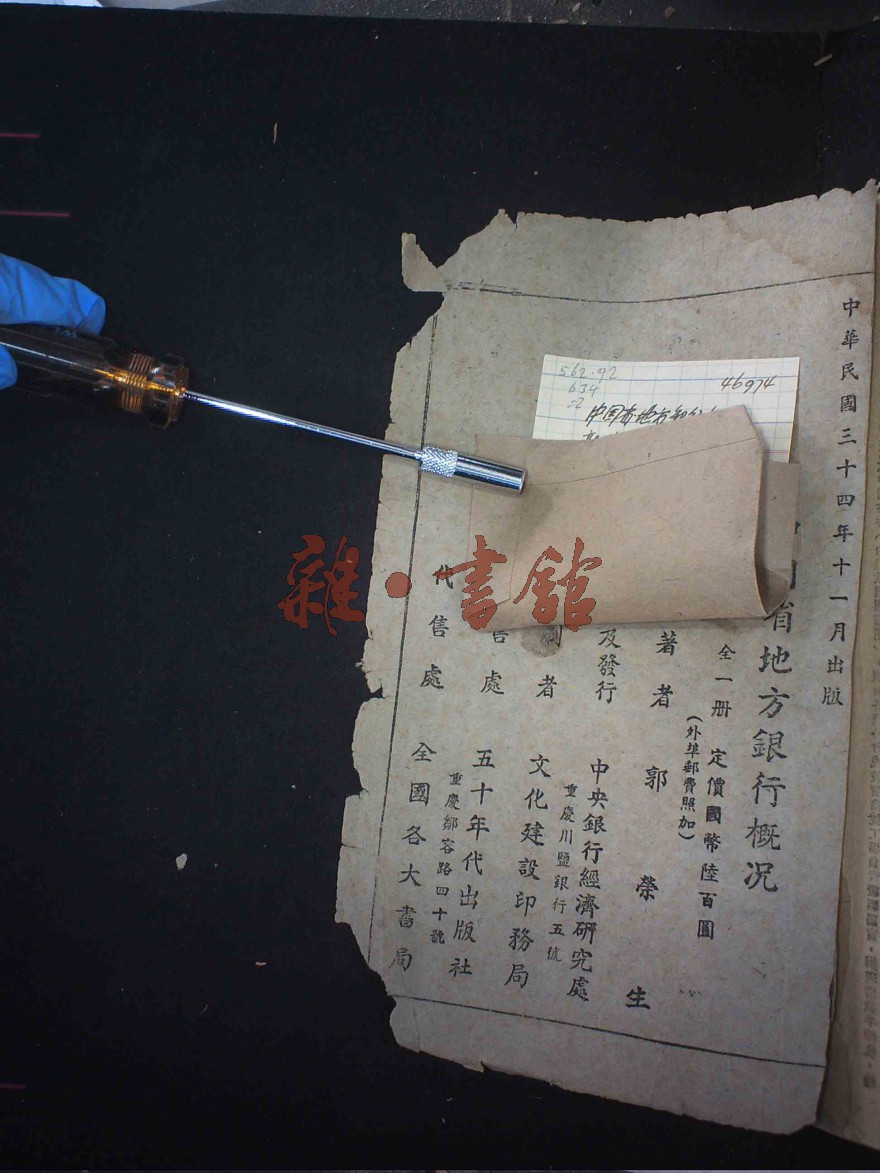 中華民國三十四年十一月出版
省地方銀行概況
全一册 定價國幣陸百圓
（外埠郵費照加）
著者 郭榮生
及發行 中央銀行經濟研究處
重慶川鹽銀行五號
者 文化建設印務局
售處 五十年代出版社
重慶鄒容路四十號
代售處 全國各大書局
562.92
634
46974
中国省地方
雜·書館